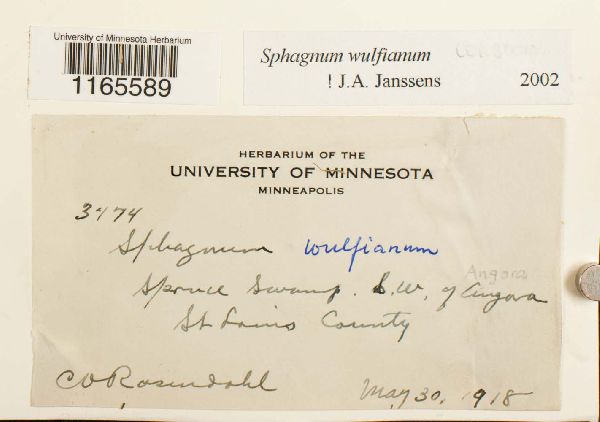 University of Minnesota Herbarium
1165589
Sphagnum wulfianum
! J.A. Janssens 2002
HERBARIUM OF THE
UNIVERSITY OF MINNESOTA
MINNEAPOLIS
3474
Sphagnum wulfianum
Angora
Spruce Swamp. S.W. of Angora
St Louis County
C O Rosendahl May 30, 1918